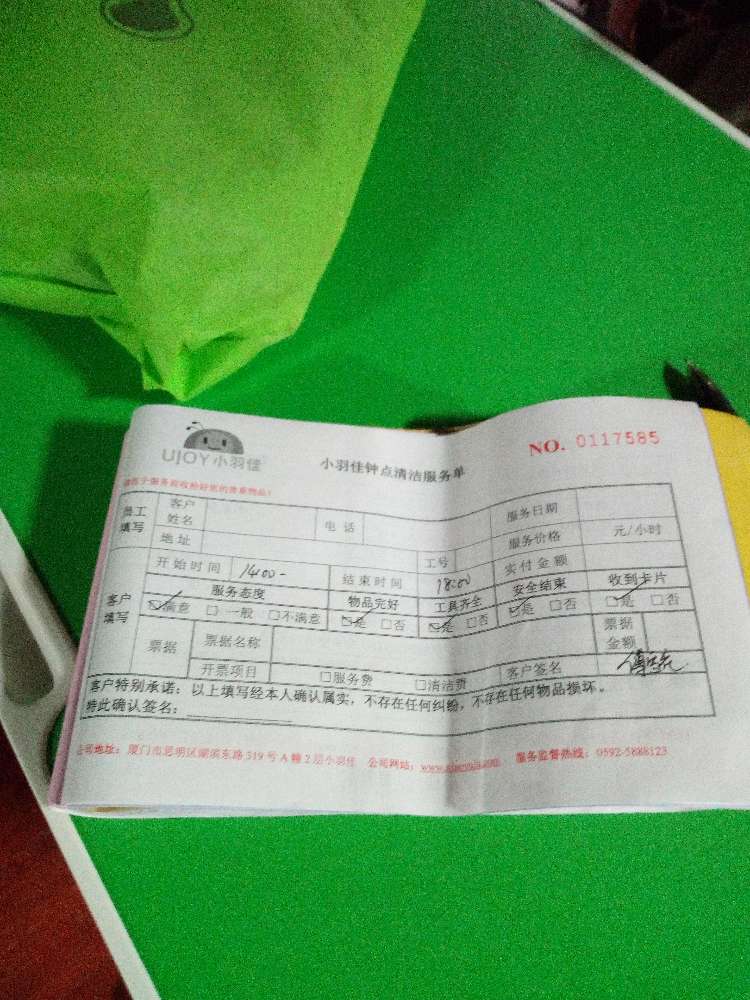 UJOY小羽佳
小羽佳钟点清洁服务单
NO. 0117585
员工填写 客户姓名 电话 服务日期
地址 工号 服务价格 元/小时
客户填写 开始时间 14:00- 结束时间 18:00 实付金额
服务态度 物品完好 工具齐全 安全结束 收到卡片
☑满意 □一般 □不满意 ☑是 □否 ☑是 □否 ☑是 □否 ☑是 □否
票据 票据名称 票据金额
开票项目 □服务费 □清洁费 客户签名
客户特别承诺:以上填写经本人确认属实,不存在任何纠纷,不存在任何物品损坏。
特此确认签名:
公司地址:厦门市思明区湖滨东路319号A幢2层小羽佳 公司网站: 服务监督热线:0592-5888123